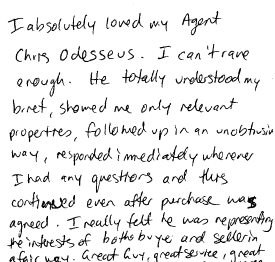 I absolutely loved my Agent
Chris Odesseus. I can't rave
enough. He totally understood my
brief, showed me only relevant
properties, followed up in an unobtrusive
way, responded immediately whenever
I had any questions and this
continued even after purchase was
agreed. I really felt he was representing
the interests of both buyer and seller in
a fair way. Great Guy, great service, great